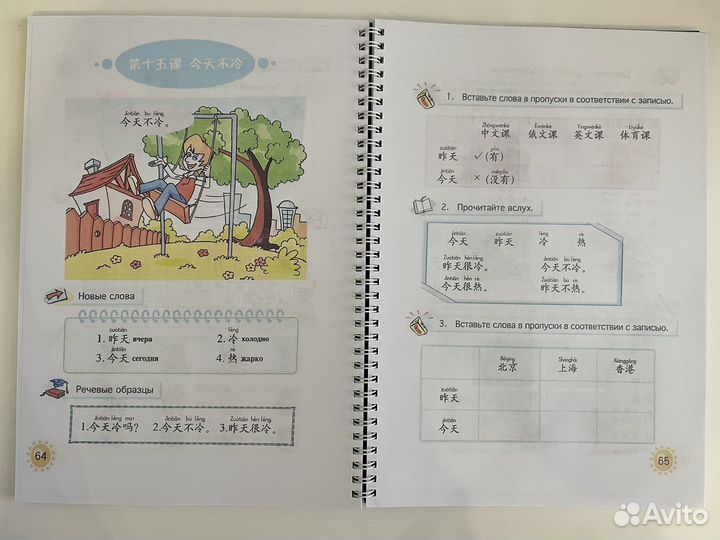 第十五课 今天不冷
Jīntiān bù lěng
今天不冷。
Новые слова
zuótiān lěng
1. 昨天 вчера 2. 冷 холодно
jīntiān rè
3. 今天 сегодня 4. 热 жарко
Речевые образцы
Jīntiān lěng ma? Jīntiān bù lěng Zuótiān hěn lěng
1.今天冷吗? 2.今天不冷。 3.昨天很冷。
64
1. Вставьте слова в пропуски в соответствии с записью.
Zhōngwénkè Éwénkè Yīngwénkè tǐyùkè
中文课 俄文课 英文课 体育课
zuótiān yǒu
昨天 ✓(有)
jīntiān méiyǒu
今天 ×(没有)
2. Прочитайте вслух.
jīntiān zuótiān lěng rè
今天 昨天 冷 热
Zuótiān hěn lěng. Jīntiān bù lěng.
昨天很冷。 今天不冷。
Jīntiān hěn rè. Zuótiān bú rè.
今天很热。 昨天不热。
3. Вставьте слова в пропуски в соответствии с записью.
Běijīng Shànghǎi Xiānggǎng
北京 上海 香港
zuótiān
昨天
jīntiān
今天
65
Avito